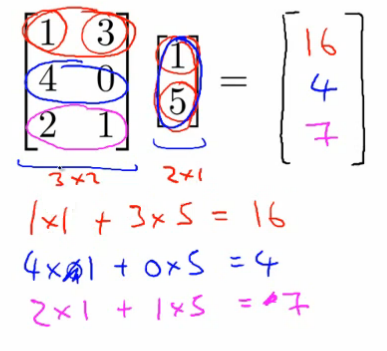 [1 3; 4 0; 2 1] [1; 5] = [16; 4; 7]
3×2 2×1
1×1 + 3×5 = 16
4×1 + 0×5 = 4
2×1 + 1×5 = 7